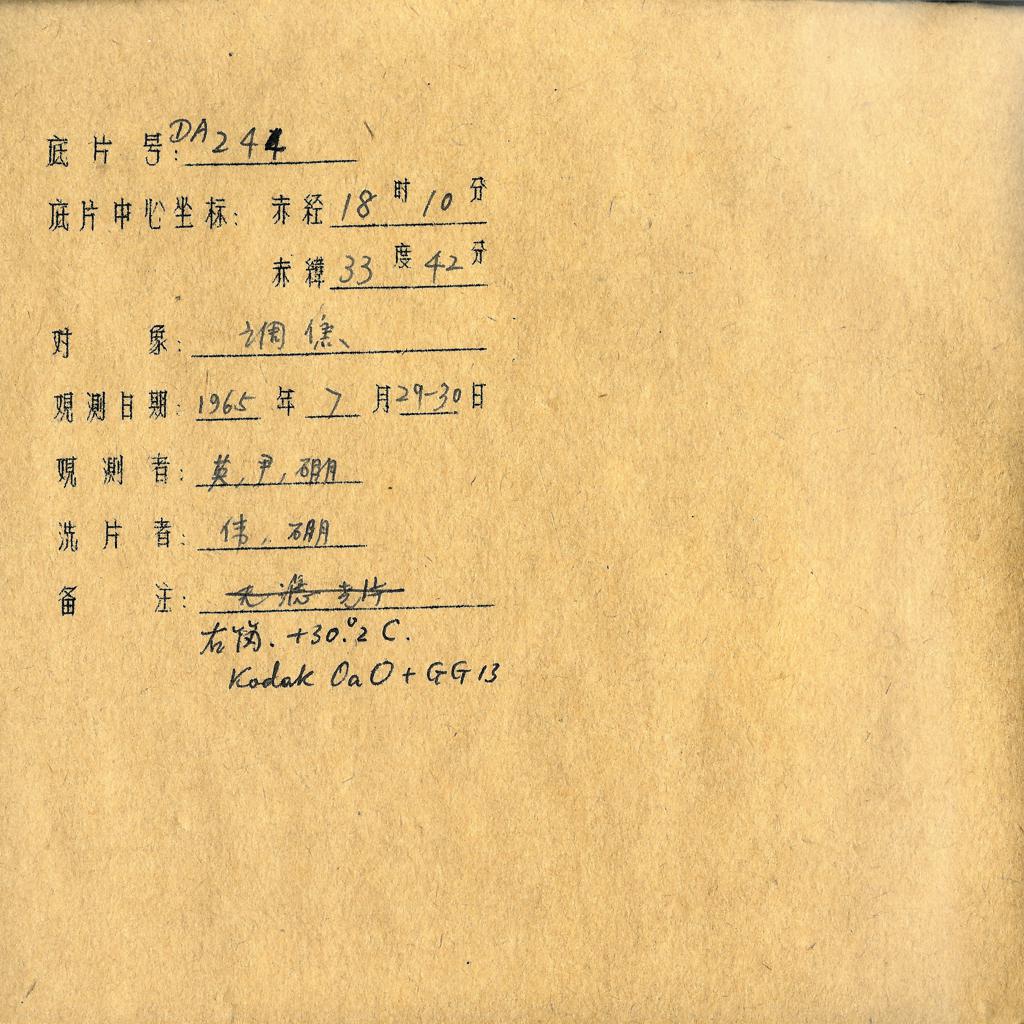 底片号: DA244
底片中心坐标: 赤经 18 时 10 分
赤纬 33 度 42 分
对象: 调焦
观测日期: 1965 年 7 月 29-30 日
观测者: 英, 尹, 硼
洗片者: 伟, 硼
备注: 无滤光片
右 +30.°2 C.
Kodak OaO + GG 13